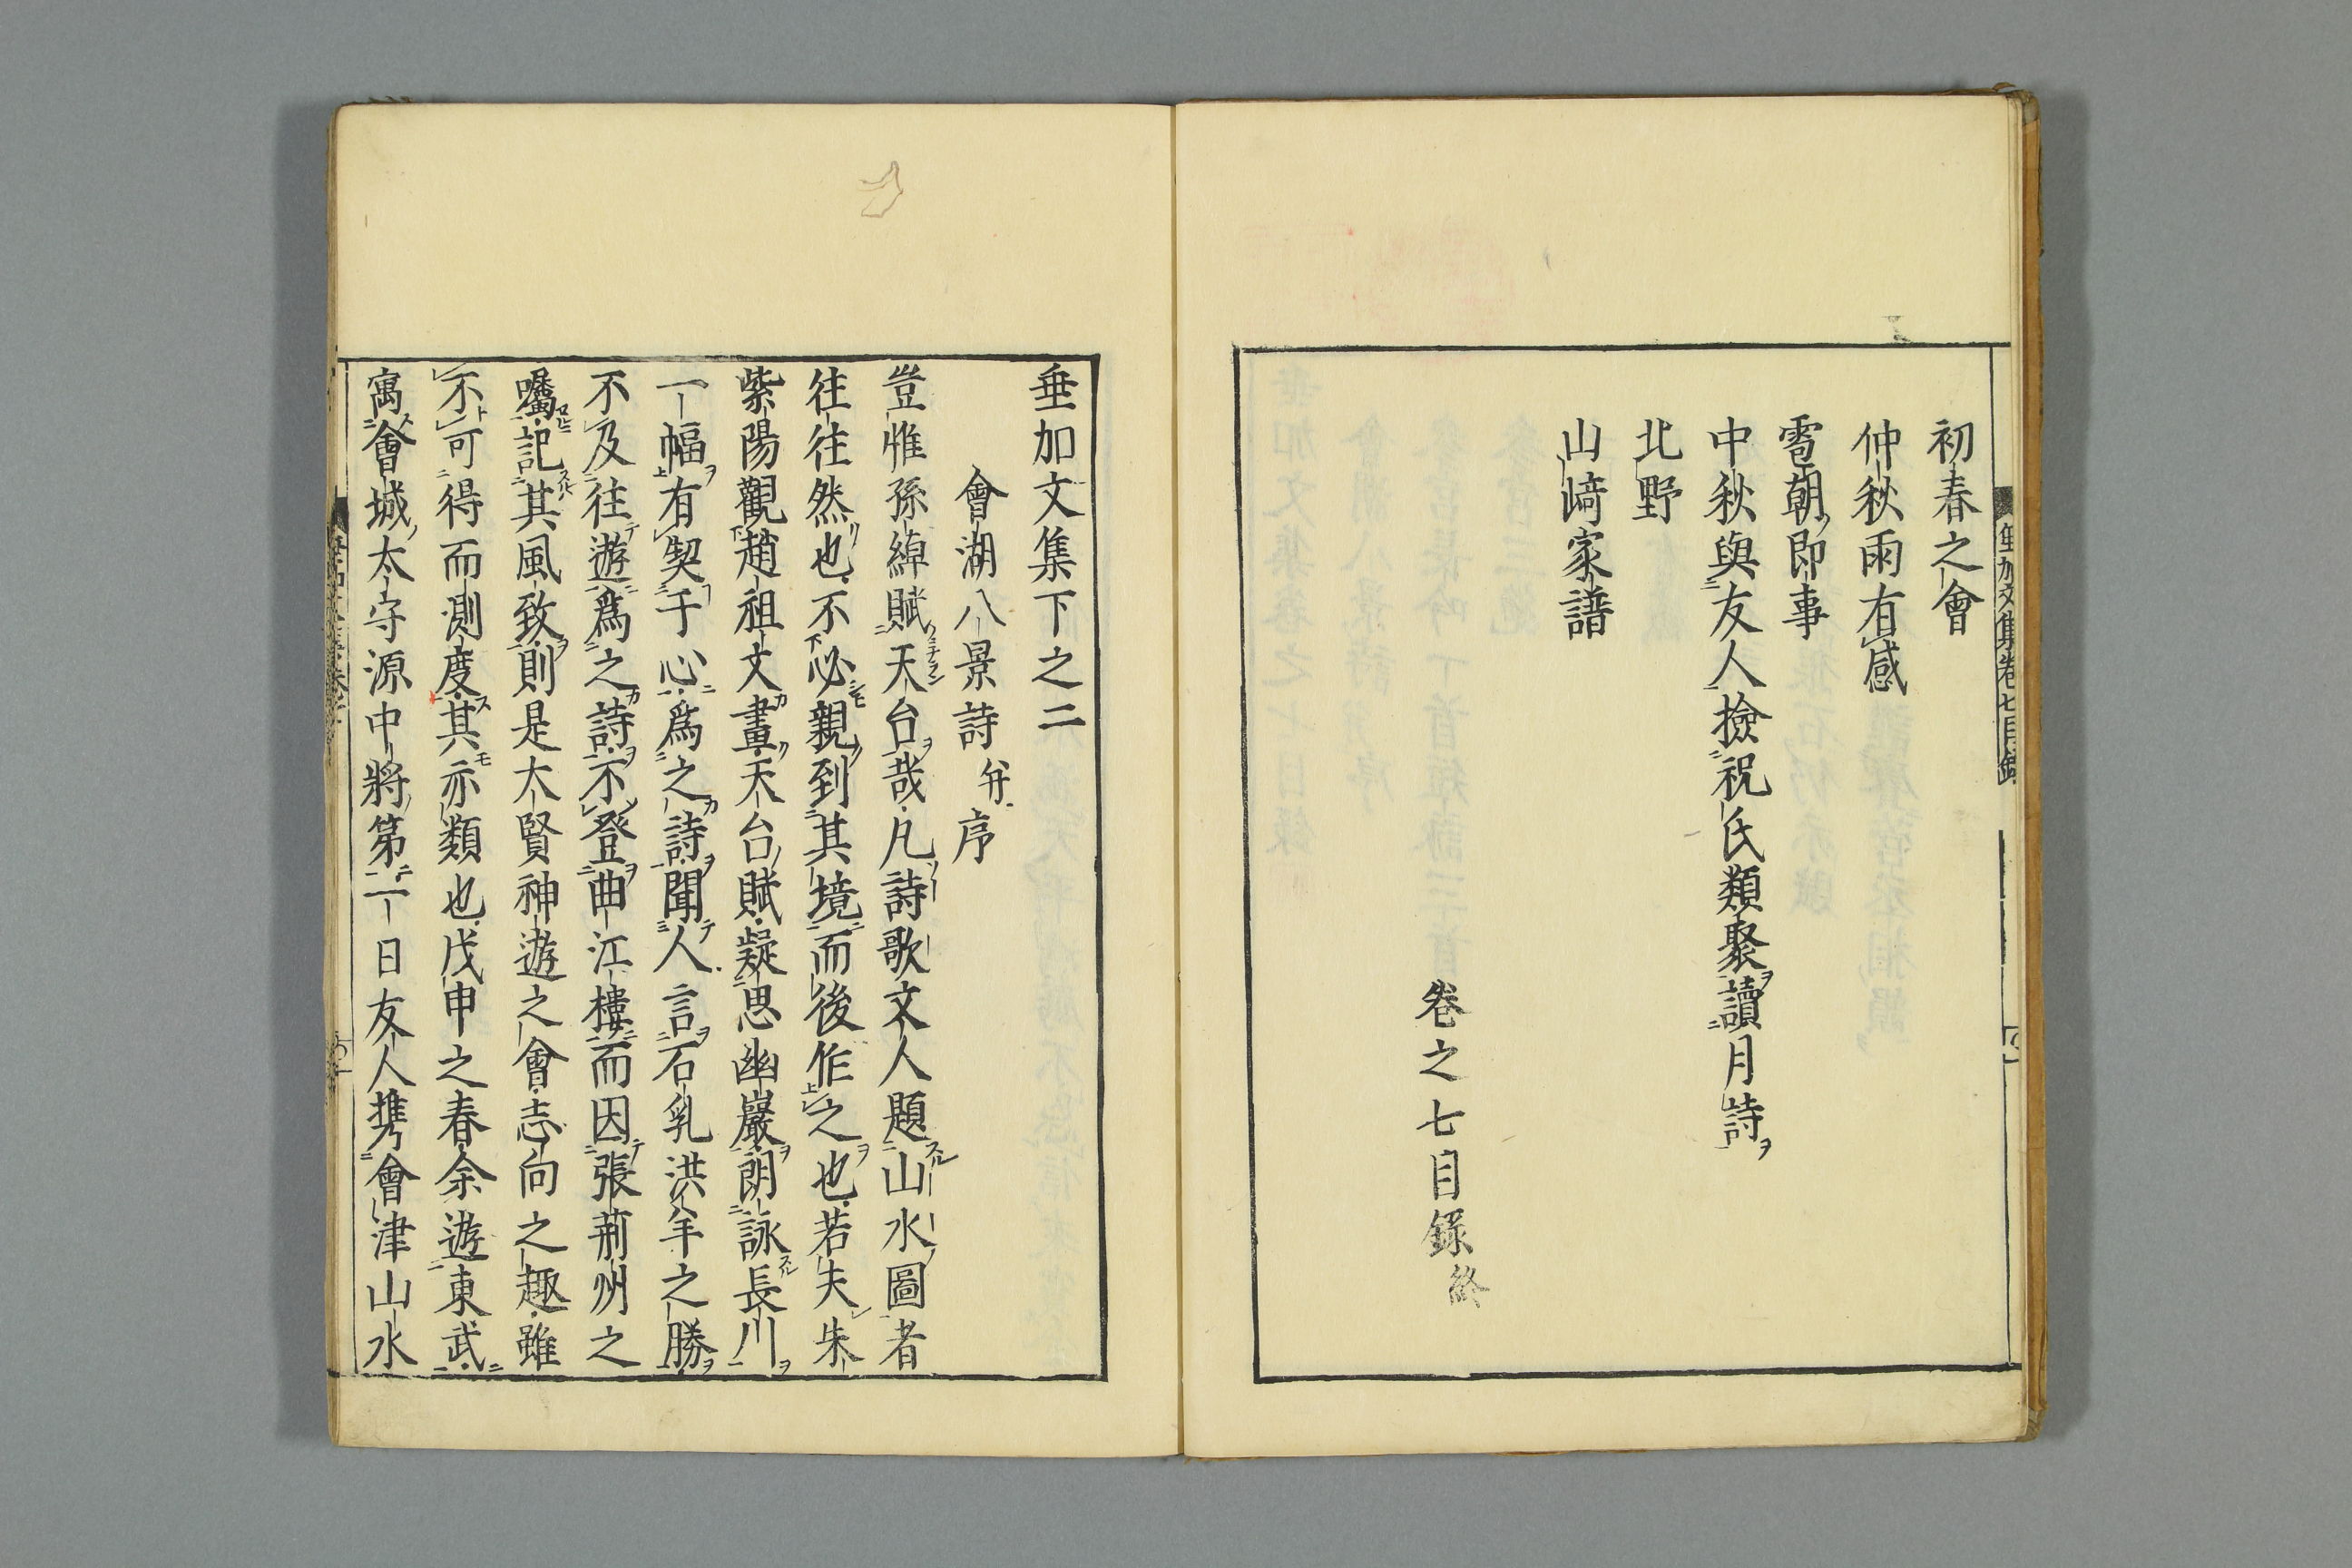 初春之會
仲秋雨有感
雹朝即事
中秋與友人撿祝氏類聚讀月詩
北野
山﨑家譜
卷之七目録終
垂加文集卷七目録
垂加文集下之二
會湖八景詩并序
豈惟孫綽賦天台哉凡詩歌文人題山水圖者
往往然也不必親到其境而後作之也若夫朱
紫陽觀趙祖文畫天台賦凝思幽巖朗詠長川
一幅有契于心爲之詩聞人言石乳洪羊之勝
不及往遊爲之詩不登曲江樓而因張荊州之
囑記其風致則是大賢神遊之會志向之趣雖
不可得而測度其亦類也戊申之春余遊東武
寓會城太守源中將第一日友人携會津山水